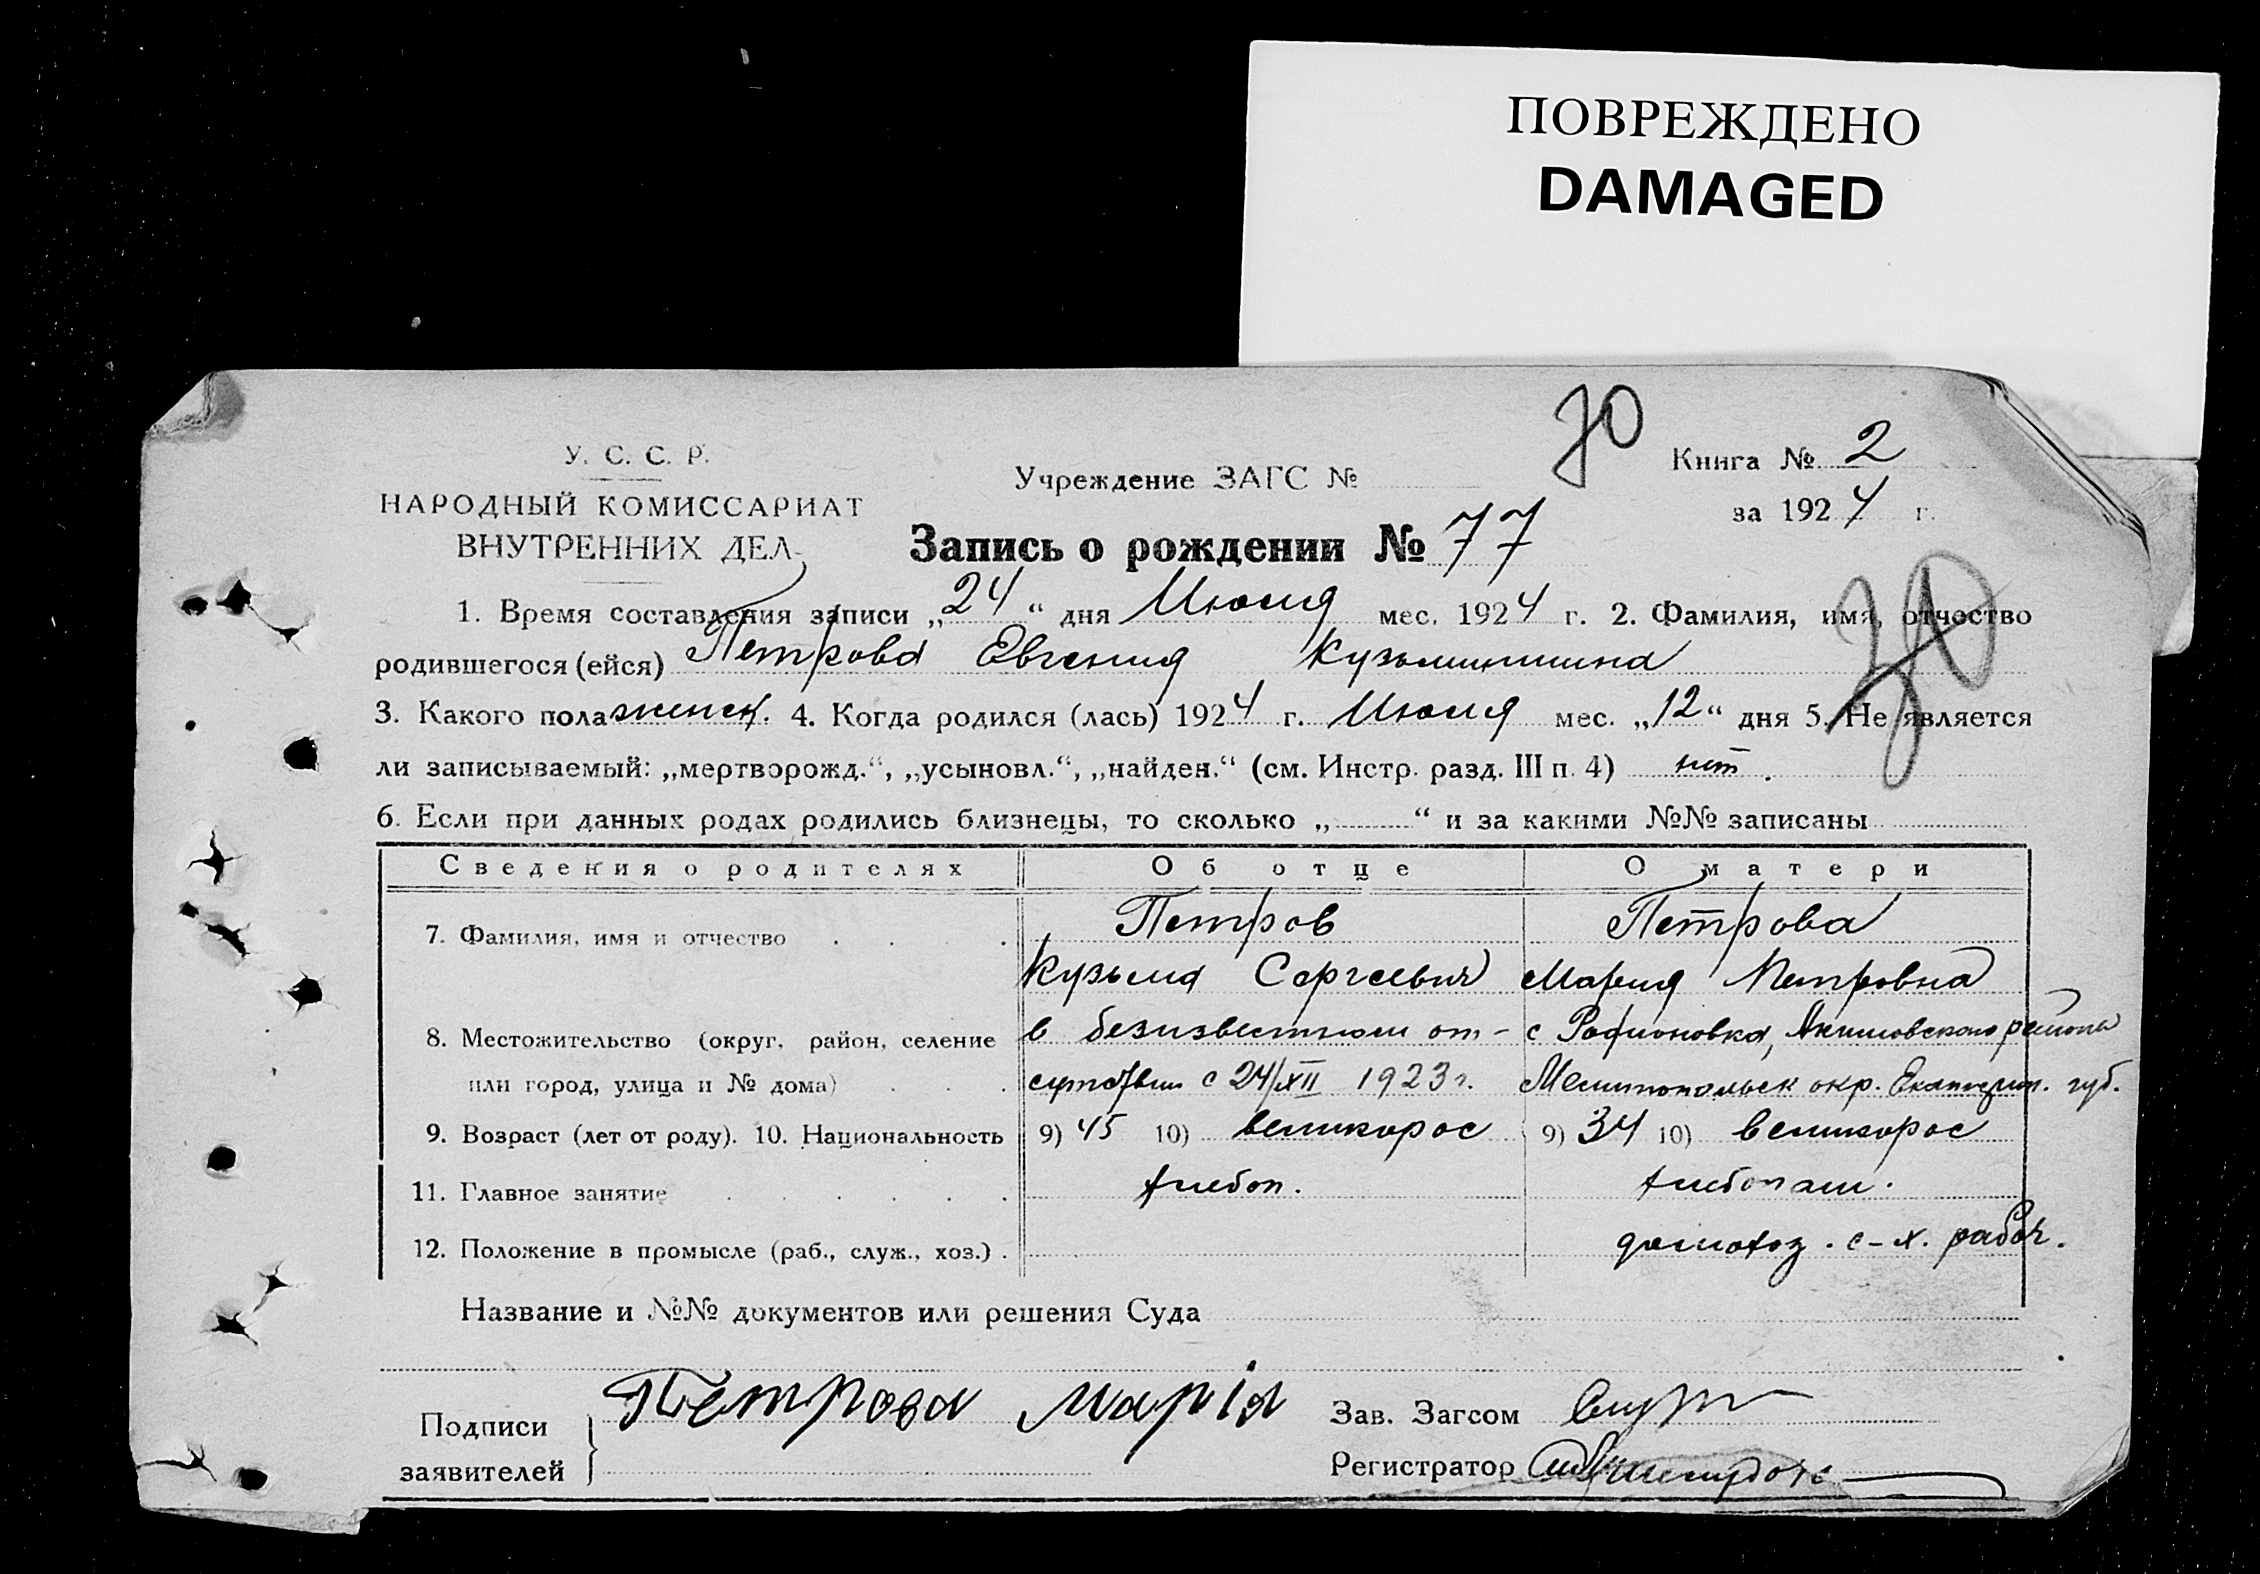 ПОВРЕЖДЕНО
DAMAGED
70
У. С. С. Р.
НАРОДНЫЙ КОМИССАРИАТ
ВНУТРЕННИХ ДЕЛ
Учреждение ЗАГС №
Книга № 2
за 1924 г.
Запись о рождении № 77
70
1. Время составления записи „24“ дня Июля мес. 1924 г. 2. Фамилия, имя, отчество
родившегося (ейся) Петрова Евгения Кузьминишна
3. Какого пола женск. 4. Когда родился (лась) 1924 г. Июля мес. „12“ дня 5. Не является
ли записываемый: „мертворожд.“, „усыновл.“, „найден.“ (см. Инстр. разд. III п. 4) нет.
6. Если при данных родах родились близнецы, то сколько „ “ и за какими №№ записаны
Сведения о родителях Об отце О матери
7. Фамилия, имя и отчество . . . . Петров Петрова
Кузьма Сергеевич Мария Петровна
8. Местожительство (округ, район, селение в безизвестном от- с Родионовка, Акимовского района
или город, улица и № дома) . . . сутствии с 24/XII 1923 г. Мелитопольск окр. Екатерин. губ.
9. Возраст (лет от роду). 10. Национальность 9) 45 10) великорос 9) 34 10) великорос
11. Главное занятие . . . . . . хлебоп. хлебопаш.
12. Положение в промысле (раб., служ., хоз.) . домохоз. с-х. рабоч.
Название и №№ документов или решения Суда
Подписи
заявителей
Петрова Марія
Зав. Загсом
Регистратор